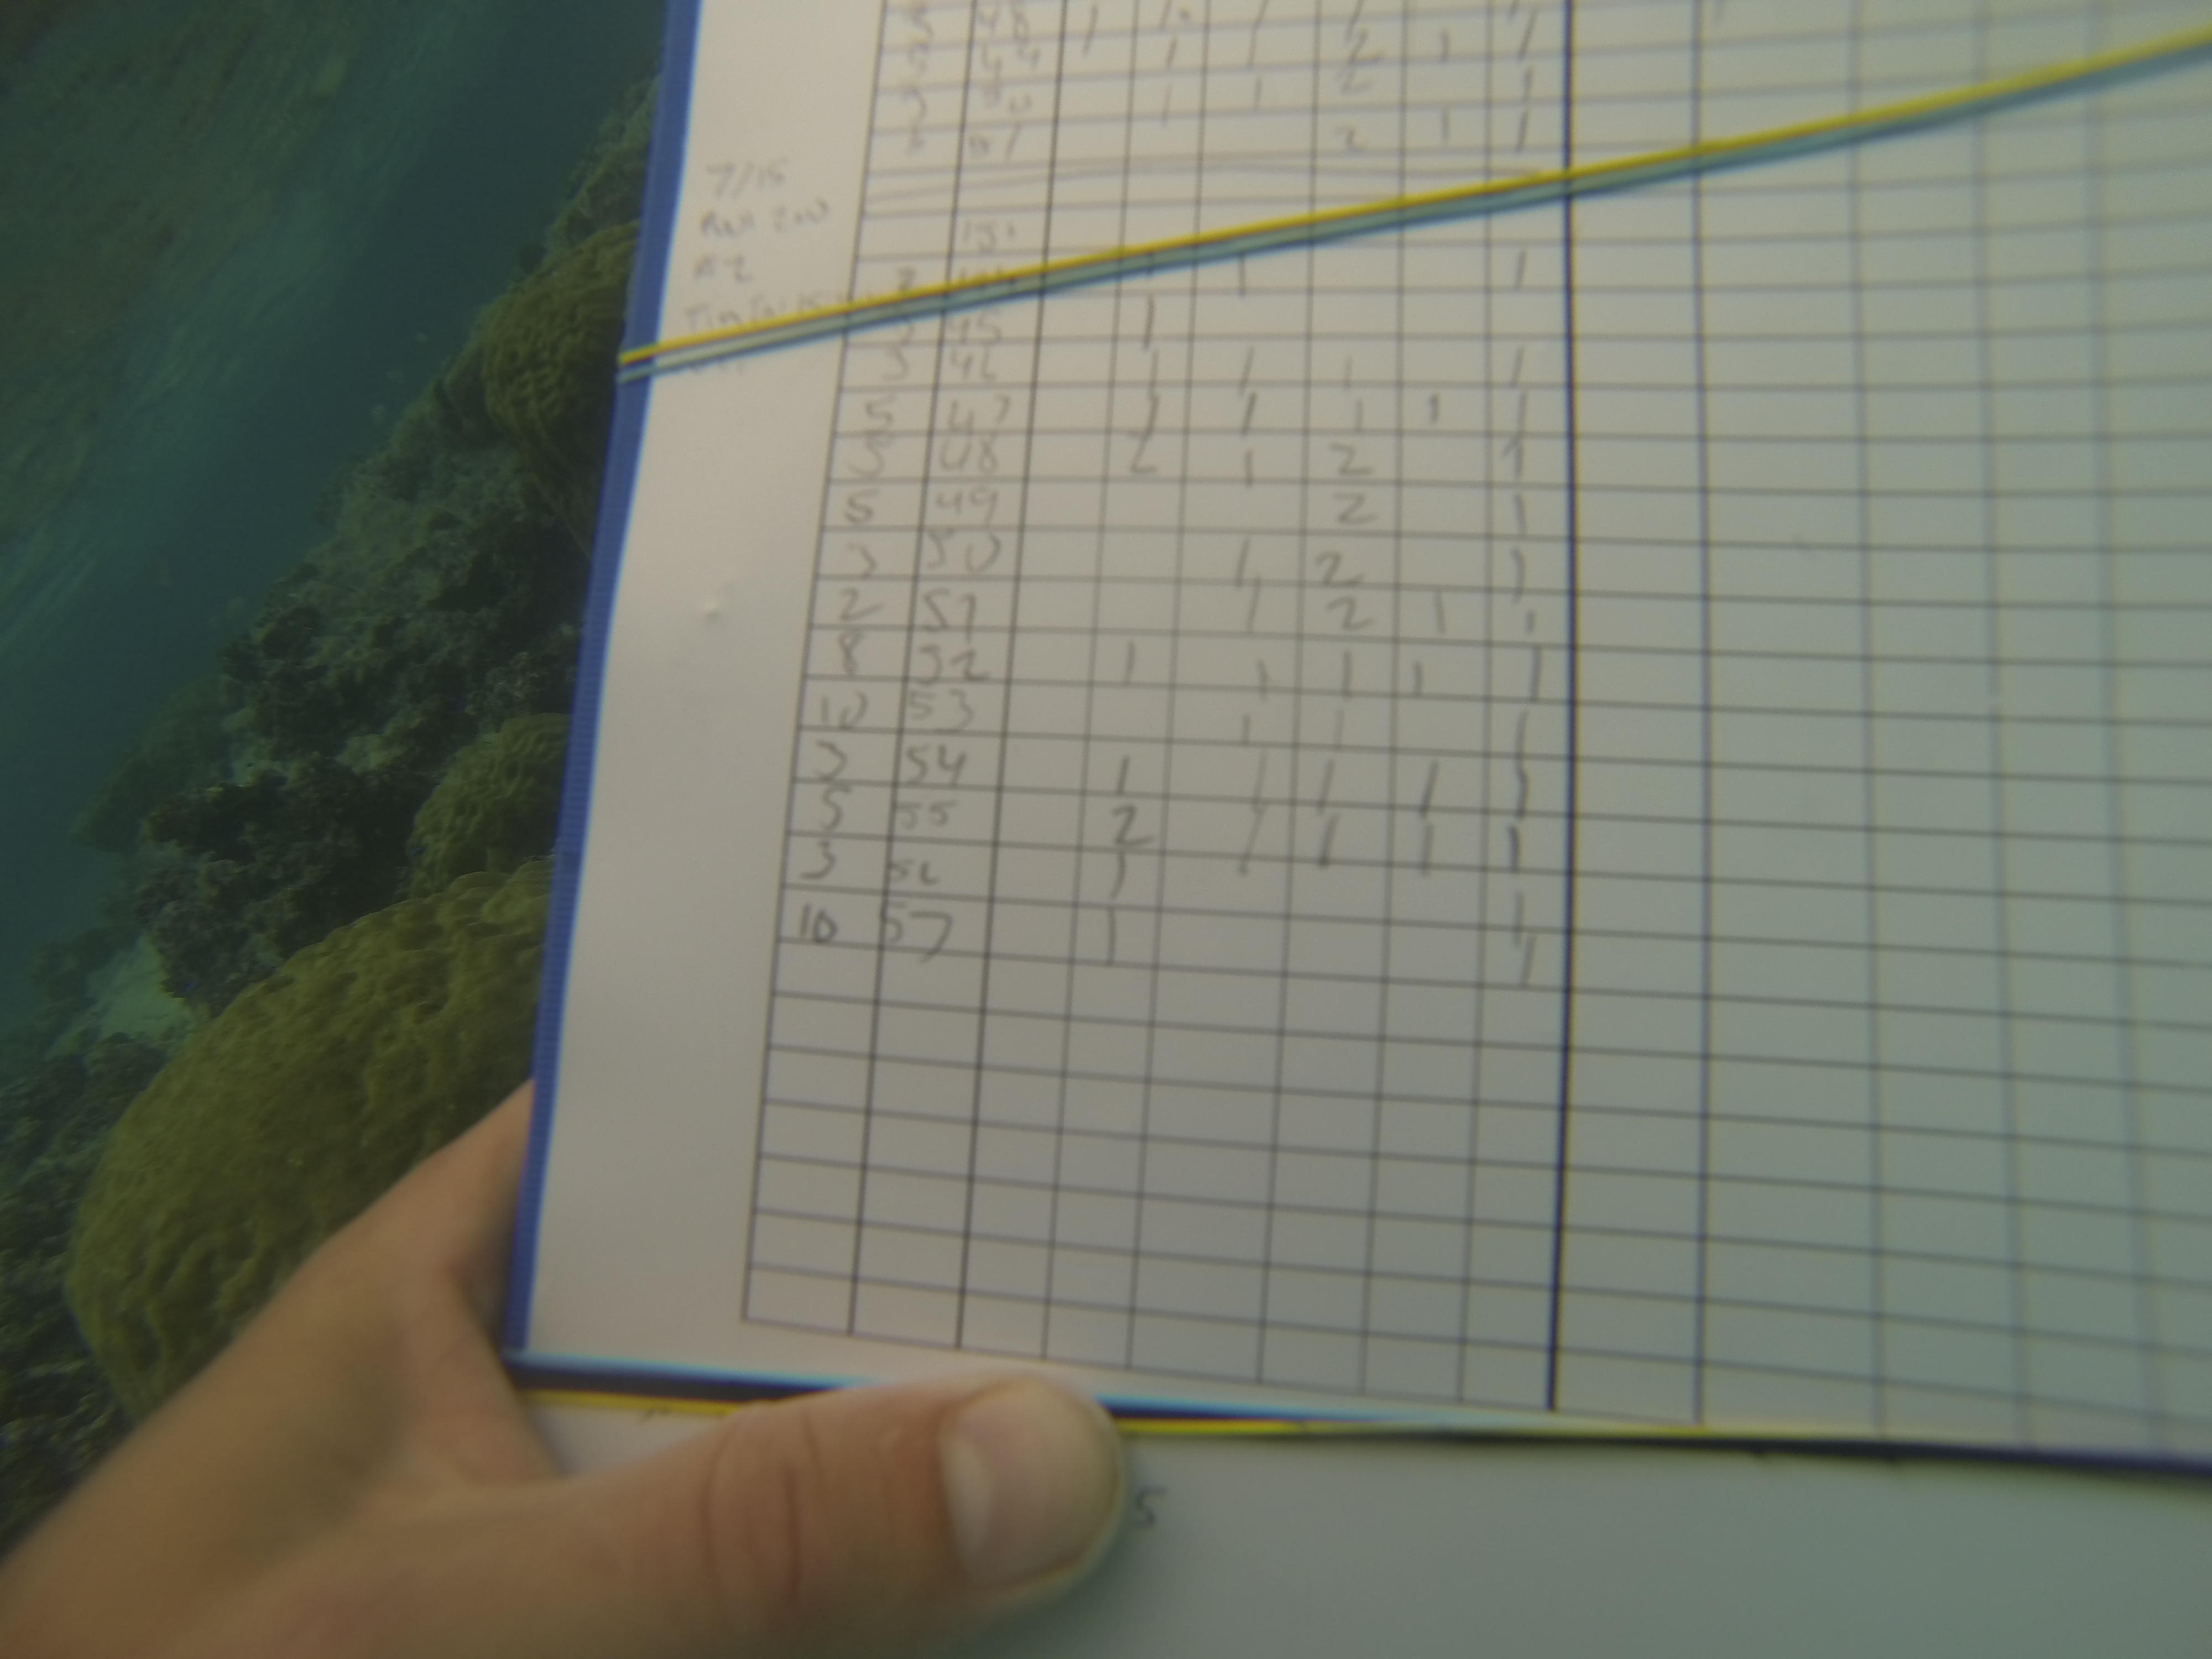 5 48 1 1 1 1 1
5 49 1 1 1 2 1 1
3 50 1 1 2 1
3 51 2 1 1
7/15
151
2 1 1 1
45 1
3 46 1 1 1 1
5 47 1 1 1 1 1
5 48 2 1 2 1
5 49 2 1
3 50 1 2 1
2 51 1 2 1 1
8 52 1 1 1 1 1
10 53 1 1 1
3 54 1 1 1 1 1
5 55 2 1 1 1 1
3 56 1 1
10 57 1 1
5